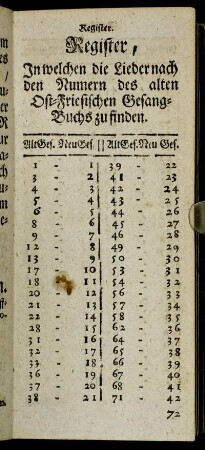 Register.
Register,
In welchen die Lieder nach
den Numern des alten
Ost-Friesischen Gesang-
Buchs zu finden.
Alt Ges. Neu Ges. || Alt Ges. Neu Ges.
1 - 1 39 - 22
3 - 2 41 - 23
4 - 3 42 - 24
5 - 4 43 - 25
6 - 5 44 - 26
8 - 6 45 - 27
9 - 7 46 - 28
12 - 8 49 - 29
13 - 9 50 - 30
17 - 10 51 - 31
18 - 11 54 - 32
20 - 12 56 - 33
21 - 13 57 - 34
22 - 14 58 - 35
28 - 15 62 - 36
31 - 16 64 - 37
32 - 17 65 - 38
33 - 18 66 - 39
36 - 19 67 - 40
37 - 20 68 - 41
38 - 21 71 - 42
72